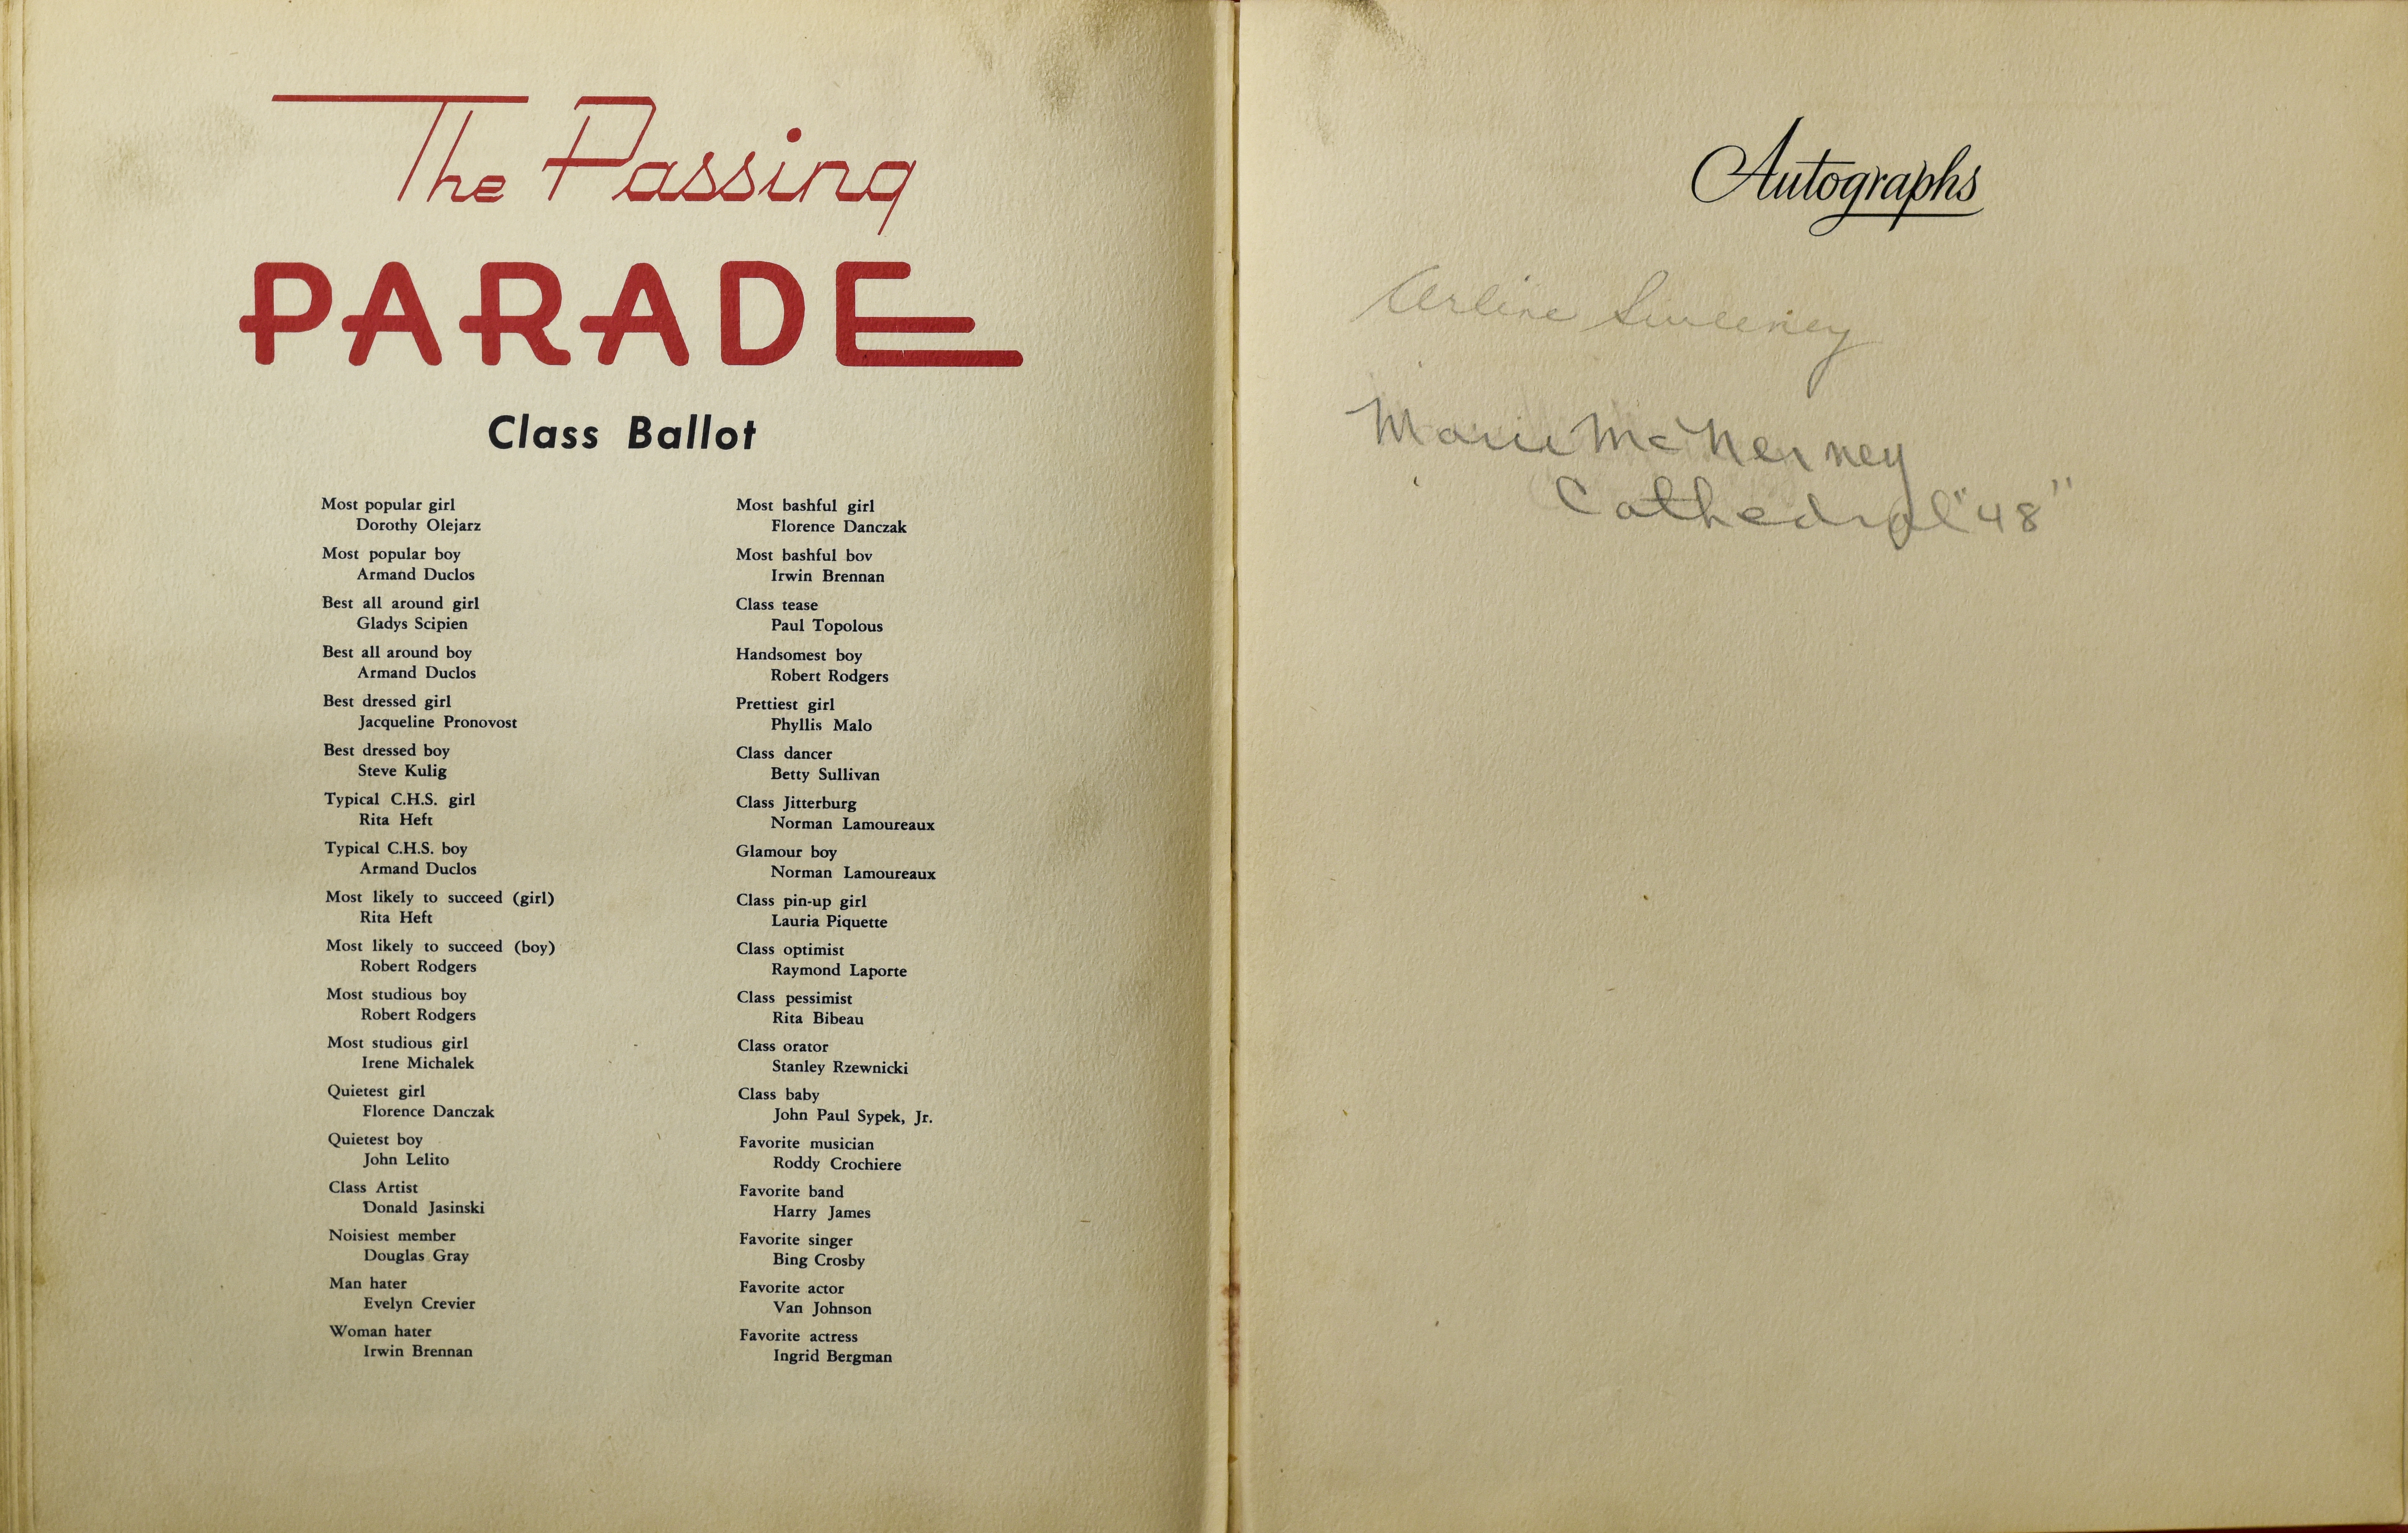 The Passing
PARADE
Class Ballot
Most popular girl
Dorothy Olejarz
Most popular boy
Armand Duclos
Best all around girl
Gladys Scipien
Best all around boy
Armand Duclos
Best dressed girl
Jacqueline Pronovost
Best dressed boy
Steve Kulig
Typical C.H.S. girl
Rita Heft
Typical C.H.S. boy
Armand Duclos
Most likely to succeed (girl)
Rita Heft
Most likely to succeed (boy)
Robert Rodgers
Most studious boy
Robert Rodgers
Most studious girl
Irene Michalek
Quietest girl
Florence Danczak
Quietest boy
John Lelito
Class Artist
Donald Jasinski
Noisiest member
Douglas Gray
Man hater
Evelyn Crevier
Woman hater
Irwin Brennan
Most bashful girl
Florence Danczak
Most bashful bov
Irwin Brennan
Class tease
Paul Topolous
Handsomest boy
Robert Rodgers
Prettiest girl
Phyllis Malo
Class dancer
Betty Sullivan
Class Jitterburg
Norman Lamoureaux
Glamour boy
Norman Lamoureaux
Class pin-up girl
Lauria Piquette
Class optimist
Raymond Laporte
Class pessimist
Rita Bibeau
Class orator
Stanley Rzewnicki
Class baby
John Paul Sypek, Jr.
Favorite musician
Roddy Crochiere
Favorite band
Harry James
Favorite singer
Bing Crosby
Favorite actor
Van Johnson
Favorite actress
Ingrid Bergman
Autographs
Arline Sweeney
Marie McNerney
Cathedral "48"